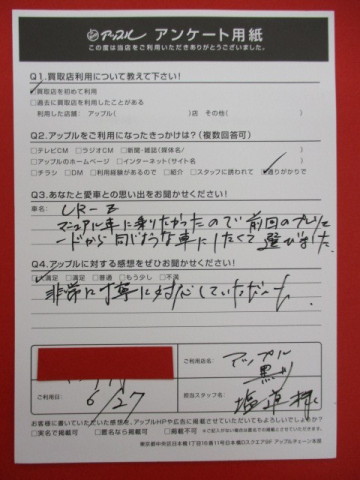 アップル アンケート用紙
この度は当店をご利用いただきありがとうございました。
Q1.買取店利用について教えて下さい!
□買取店を初めて利用
□過去に買取店を利用したことがある
利用した店舗: アップル( )店 その他( )
Q2.アップルをご利用になったきっかけは?(複数回答可)
□テレビCM □ラジオCM □新聞・雑誌(媒体名/ )
□アップルのホームページ □インターネット(サイト名 )
□チラシ □DM □利用経験があるので □紹介 □スタッフに誘われて □通りがかりで
Q3.あなたと愛車との思い出をお聞かせください!
車名: CR-Z
マニュアル車に乗りたかったので前回のプレリュ
ードから同じような車にしたくて選びました
Q4.アップルに対する感想をぜひお聞かせください!
□大満足 □満足 □普通 □もう少し □不満
非常に丁寧に対応していただいた。
ご利用店名: アップル
ご利用日: 6/27
担当スタッフ名: 塩卓 様
お客様に書いていただいた感想を、アップルHPや広告に掲載させていただいてもよろしいでしょうか?
□実名で掲載可 □匿名なら掲載可 □掲載不可
東京都中央区日本橋1丁目16番11号日本橋DスクエアSF アップルチェーン本部